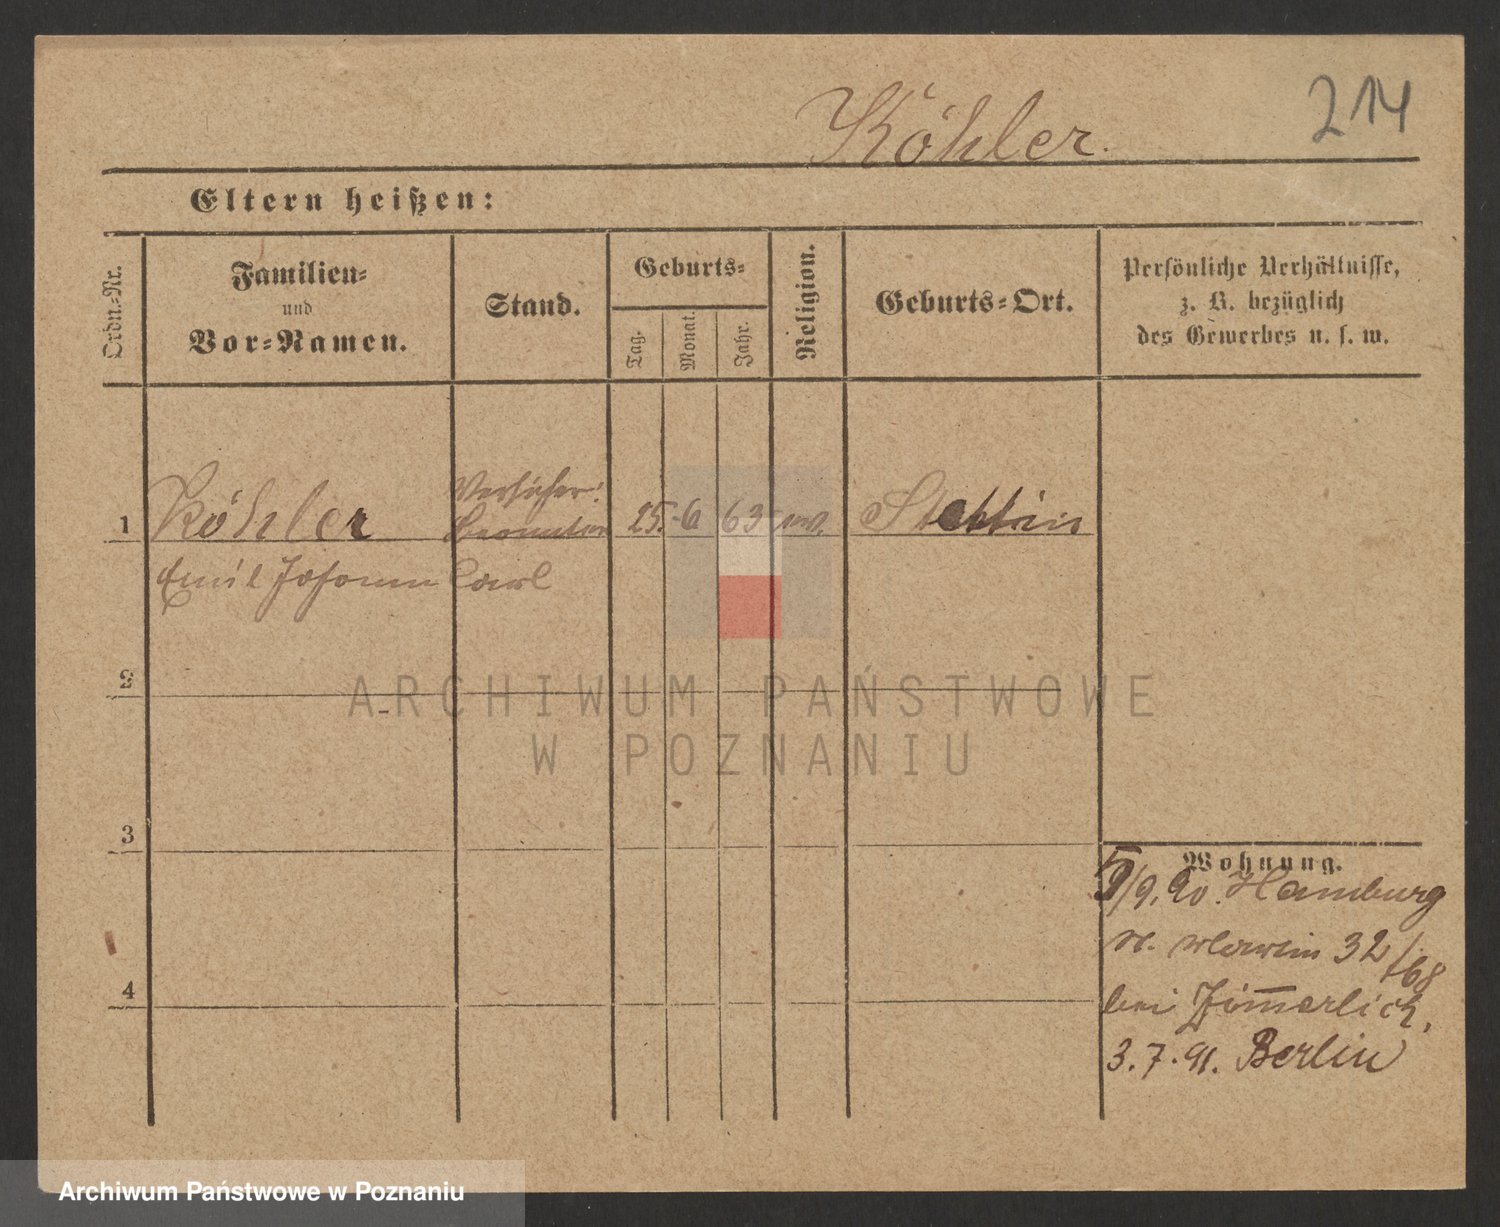 Köhler.
214
Eltern heißen:
Ordn.-Nr.
Familien-
und
Vor-Namen.
Stand.
Geburts-
Tag.
Monat.
Jahr.
Religion.
Geburts-Ort.
Persönliche Verhältnisse,
z. B. bezüglich
des Gewerbes u. s. w.
1
Köhler
Versicher:
Beamter
25. 6 63 ev. Stettin
Emil Johann Carl
2
3
4
Wohnung.
5/9. 90. Hamburg
32/68
bei Zimmerlich,
3. 7. 91. Berlin
ARCHIWUM PAŃSTWOWE
W POZNANIU
Archiwum Państwowe w Poznaniu